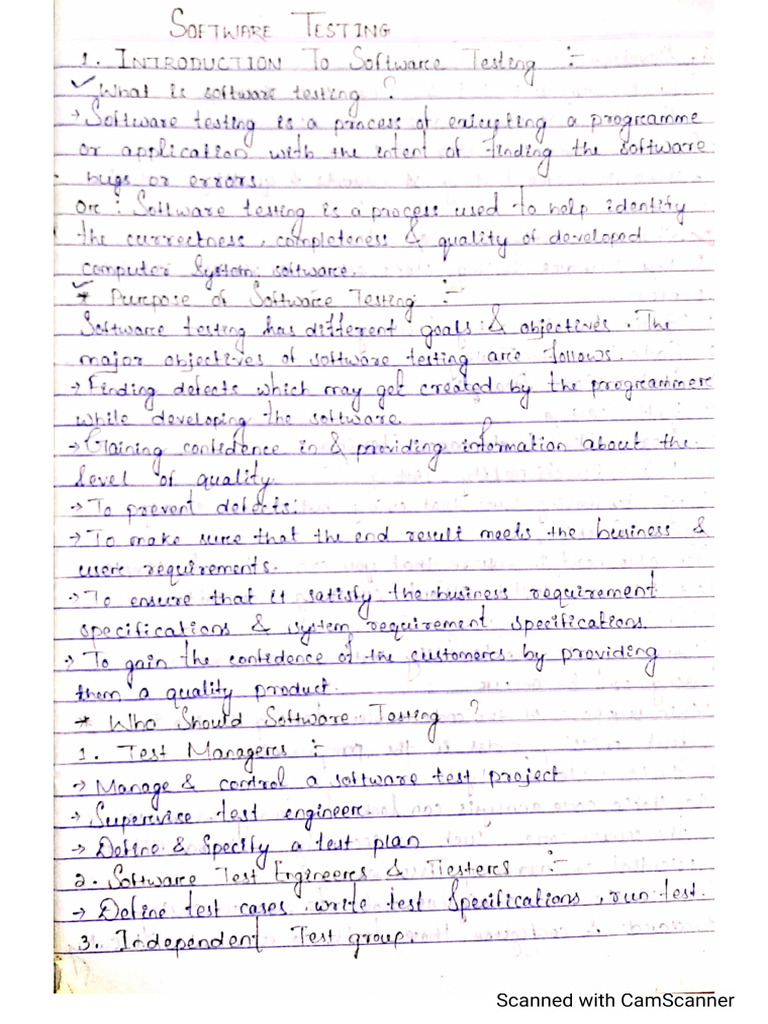 SOFTWARE TESTING
1. INTRODUCTION To Software Testing :-
What is software testing ?
→ Software testing is a process of executing a programme
or application with the intent of finding the software
bugs or errors.
Or : Software testing is a process used to help identify
the currectness, completeness & quality of developed
computer System software.
* Purpose of Software Testing :-
Software testing has different goals & objectives. The
major objectives of software testing are follows.
→ Finding defects which may get created by the programmers
while developing the software.
→ Gaining confidence in & providing information about the
level of quality.
→ To prevent defects.
→ To make sure that the end result meets the business &
users requirements.
→ To ensure that it satisfy the business requirement
specifications & system requirement specifications.
→ To gain the confidence of the customers by providing
them a quality product.
* Who Should Software Testing ?
1. Test Managers :-
→ Manage & control a software test project
→ Supervise test engineer
→ Define & Specify a test plan
2. Software Test Engineers & Testers :-
→ Define test cases, write test Specifications, run test.
3. Independent Test group.
Scanned with CamScanner